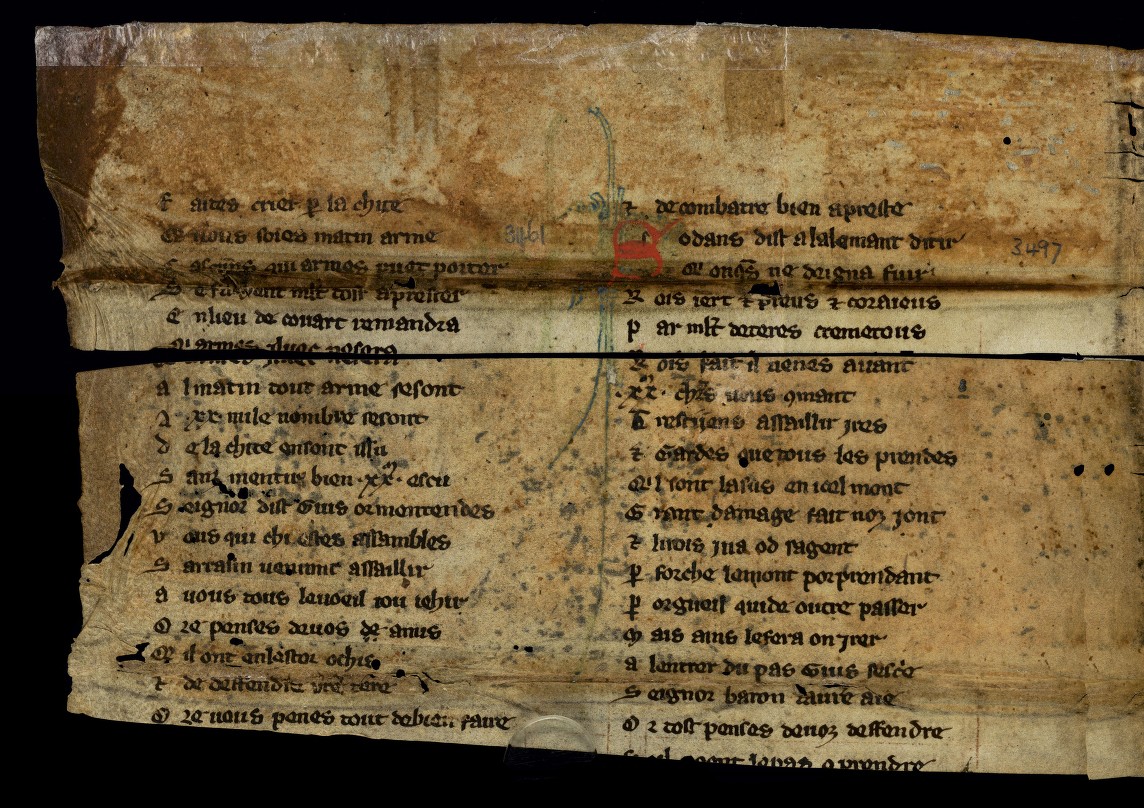 F aites crier p la chite
E uous soies matin arme
qui armes puet porter
S e fuiuent mlt tost aprester
E nlieu de couart remandra
Qi armes
a l matin tout arme se sont
xx mile nombre seront
d e la chite en sont issu
S anz mentir bien .xx. escu
S eignor dist Guis or mentendes
v ous qui chi estes assambles
S arrasin uenront assaillir
a uous tous le uoeil iou iehir
O re penses de uos amis
Q il ont en lestor ochis
z de deffendre vre tere
O re uous penes tout de bien faire
3461
z de combatre bien apreste
S odans dist a lalemant ditir
Qi onqs ne deigna fuir
R ois iert z preus z coraieus
P ar mlt de teres cremeteus
R ois fait il uenes auant
.xx. chrs uous qmant
C restijens assaillir jres
z Gardes que tous les prendes
Q il sont lasus en icel mont
G rant damage fait noz jont
z li rois jua od sa gent
P forche le mont porprendant
P orgueil quide outre passer
M ais ains le fera on jrer
a lentrer du pas Guis sesce
S eignor baron
O r tost penses de uoz deffendre
3497